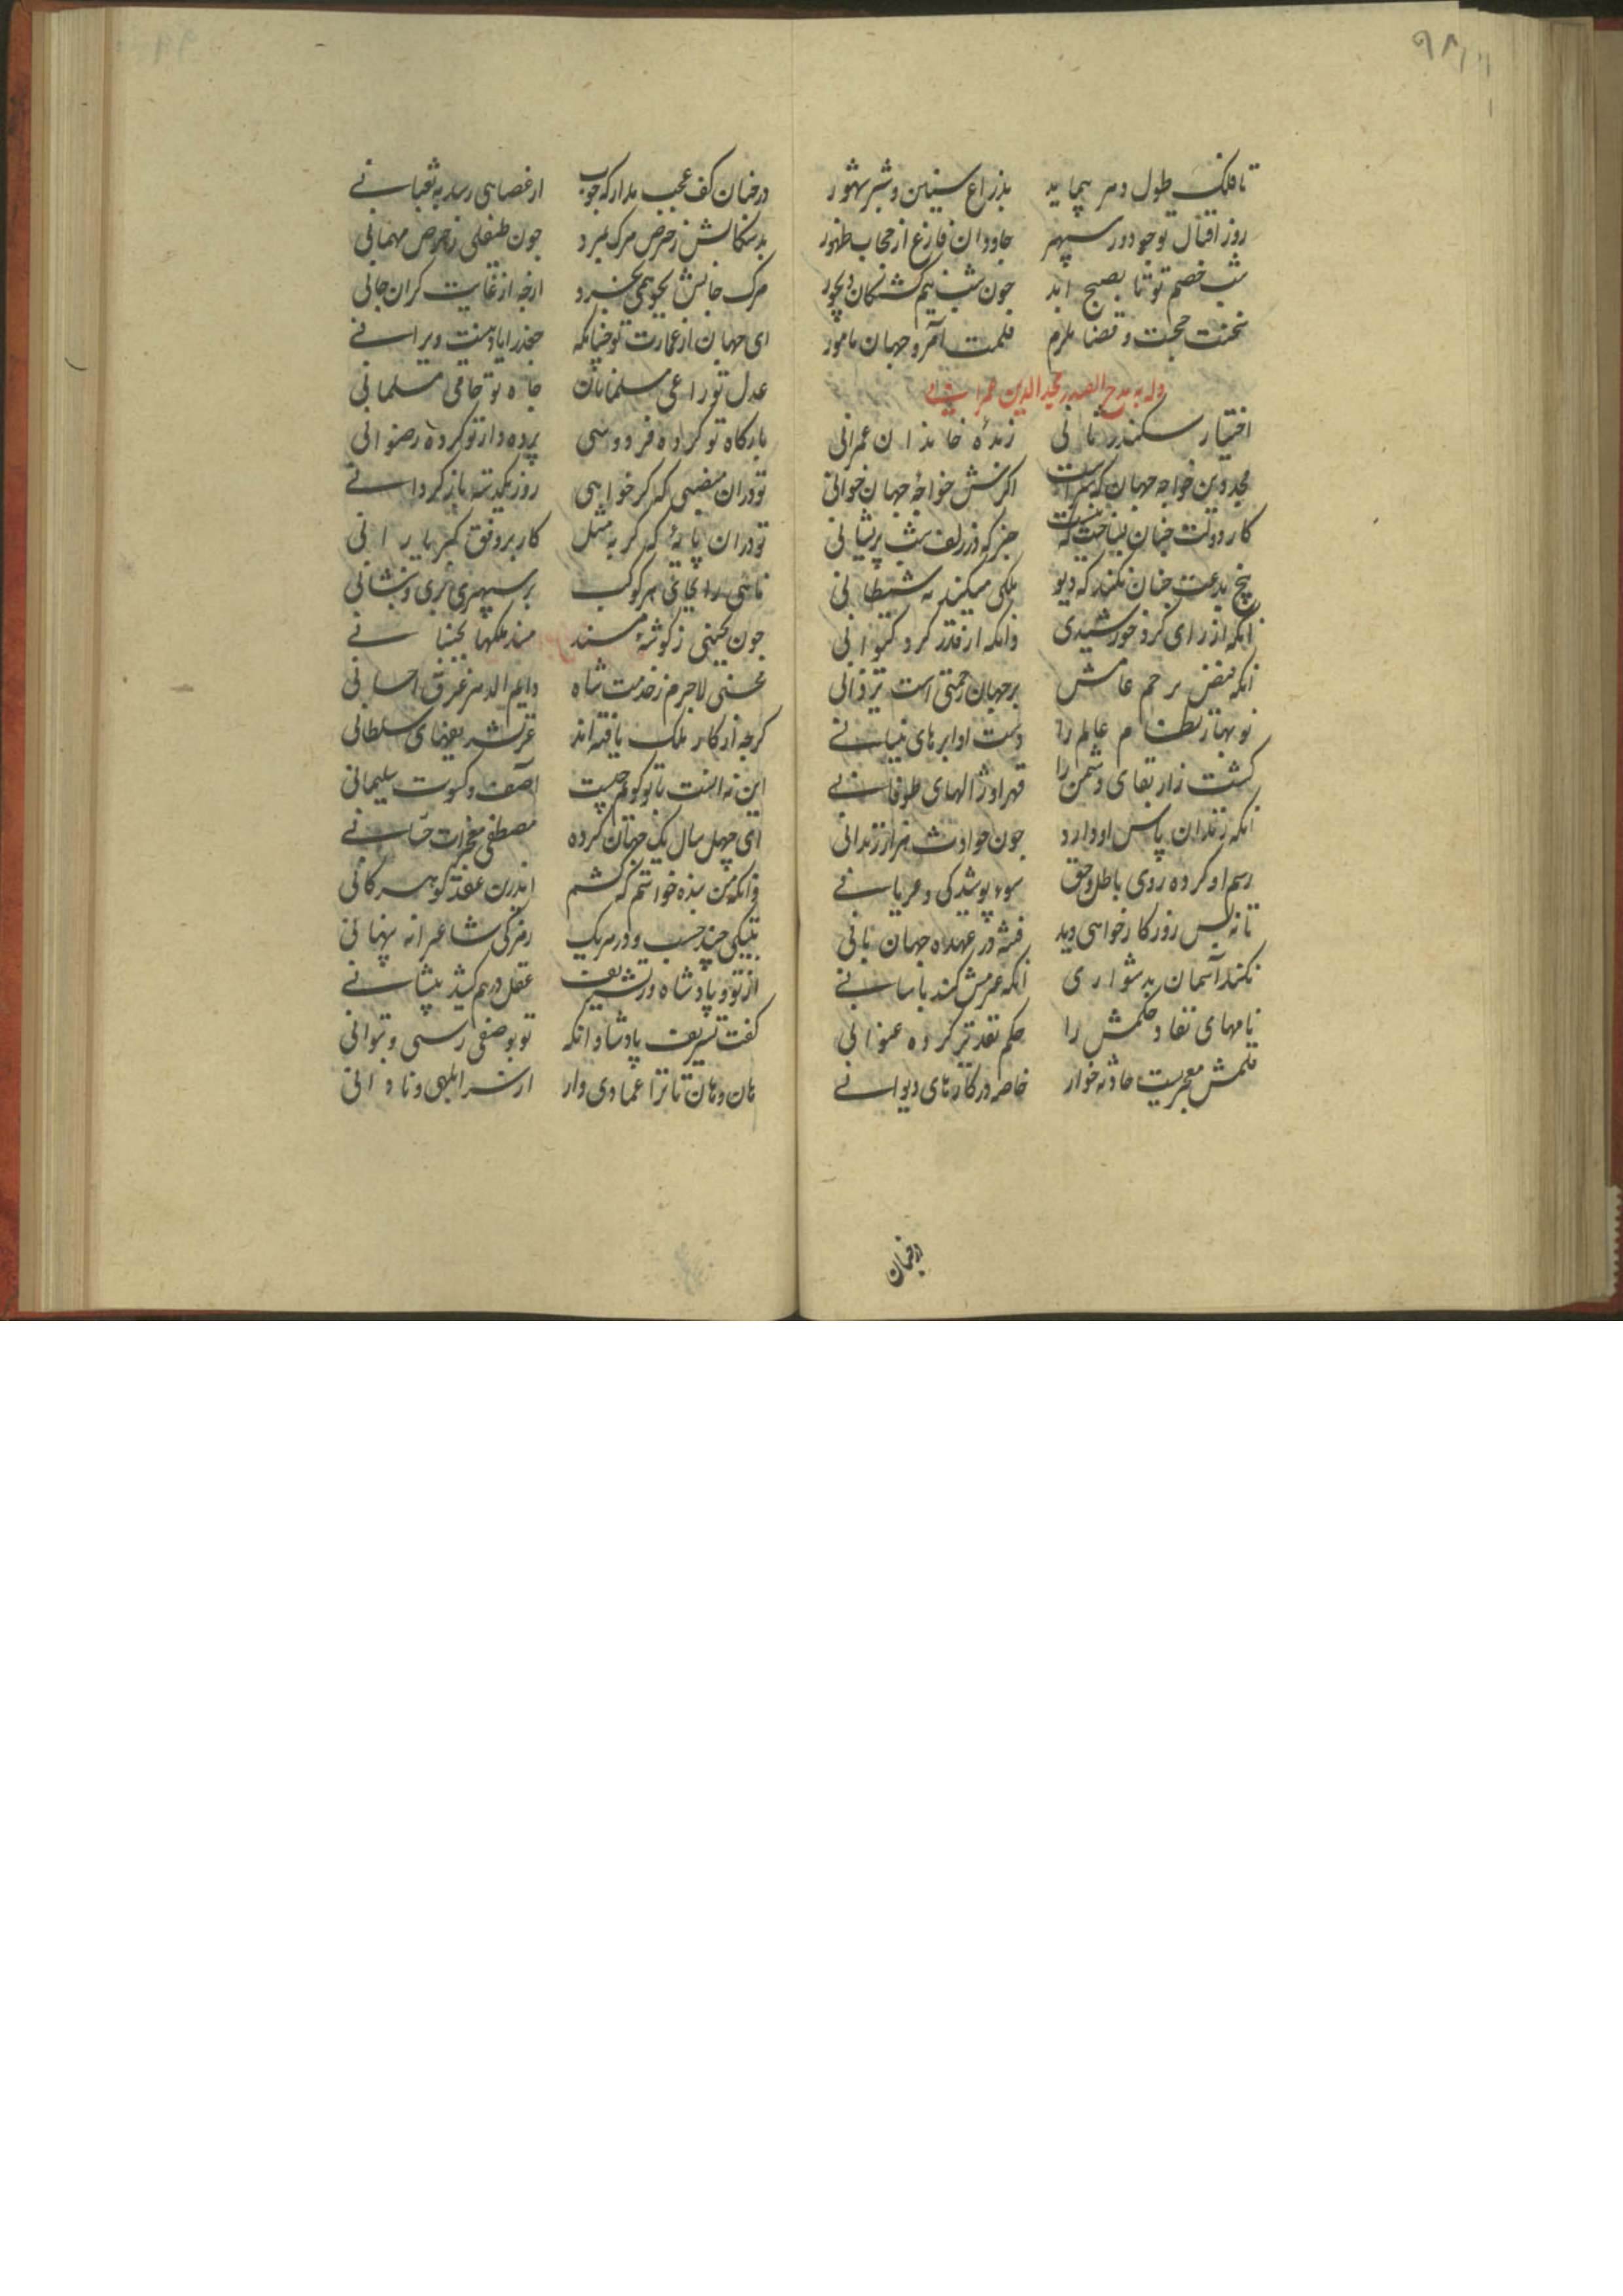 ۹۸
تا فلک طول دهر پیماید بذراع سنین و شبر شهور
روز اقبال تو چو دور سپهر جاودان فارغ از حجاب ظهور
شب خصم تو تا بصبح ابد چون شب نیم کشتکان دیجور
سخنت حجت و قضا ملزم قلمت آمر و جهان مامور
وله یمدح الصدر مجدالدین عمرانی
اختیار سکندر ثانی زبدهٔ خاندان عمرانی
مجد دین خواجه جهان که سزاست اکرش خواجهٔ جهان خوانی
کار دولت چنان بساخت که نیست جز که در زلف شب پریشانی
بیخ بدعت چنان بکند که دیو ملکی میکند نه شیطانی
انکه از رای کرد خورشیدی وانکه از قدر کرد کیوانی
انکه فیض ترحم عامش بر جهان رحمتی است یزدانی
نوبهار نظام عالم را دست او ابرهای نیسانی
کشت زار بقای دشمن را قهر او ژالهای طوفانی
انکه زندان پاس او دارد چون حوادث هزار زندانی
رسم او کرده روی باطل و حق سوء پوشیدکی و عریانی
تا نه بس روزکار خواهی دید فتنه در عهده جهان بانی
نکند آسمان بدشواری انکه عزمش کند بآسانی
نامهای نفاد حکمش را حکم تقدیر کرده عنوانی
قلمش معجزیست حادثه خوار خاصه در کارهای دیوانی
درچنان
درچنان کف عجب مدار که چوب از عصایی رسد به ثعبانی
بدسکالش ز حرص مرک بمرد چون طفیلی ز حرص مهمانی
مرک جانش بجو همی نخرد ازچه از غایت کران جانی
ای جهان از عمارت تو چنانکه جغد را یاد نیست ویرانی
عدل تو راعی مسلمانان جاه تو حامی مسلمانی
بارکاه تو کرده فردوسی پرده دار تو کرده رضوانی
تو دران منصبی که کر خواهی روز بکذشته باز کردانی
تو دران پایهٔ که کر به مثل کار بر وفق کبریا رانی
نائبی را بجای هر کوکب بر سپهری بری و بنشانی
چون بجنبی ز کوشهٔ مسند مسند ملکها بجنبانی
محسنی لاجرم ز خدمت شاه دایم الدهر غرق احسانی
کرچه ارکان ملک یافته اند عز تشریفهای سلطانی
این نه آنست با تو کویم چیست آصف و کسوت سلیمانی
ای چهل سال یک جهان کرده مصطفی معجزات حسانی
وانکه من بنده خواستم که کشم اندرین عقد کوهر کانی
بیتکی چند حسب و در هر یک رمزکی شاعرانه پنهانی
از تو و پادشاه و تشریف عقل درهم کشید پیشانی
کفت تشریف پادشا وانکه تو بوصفش رسی و بتوانی
هان و هان تا ترا عمادی وار از سر ابلهی و نادانی